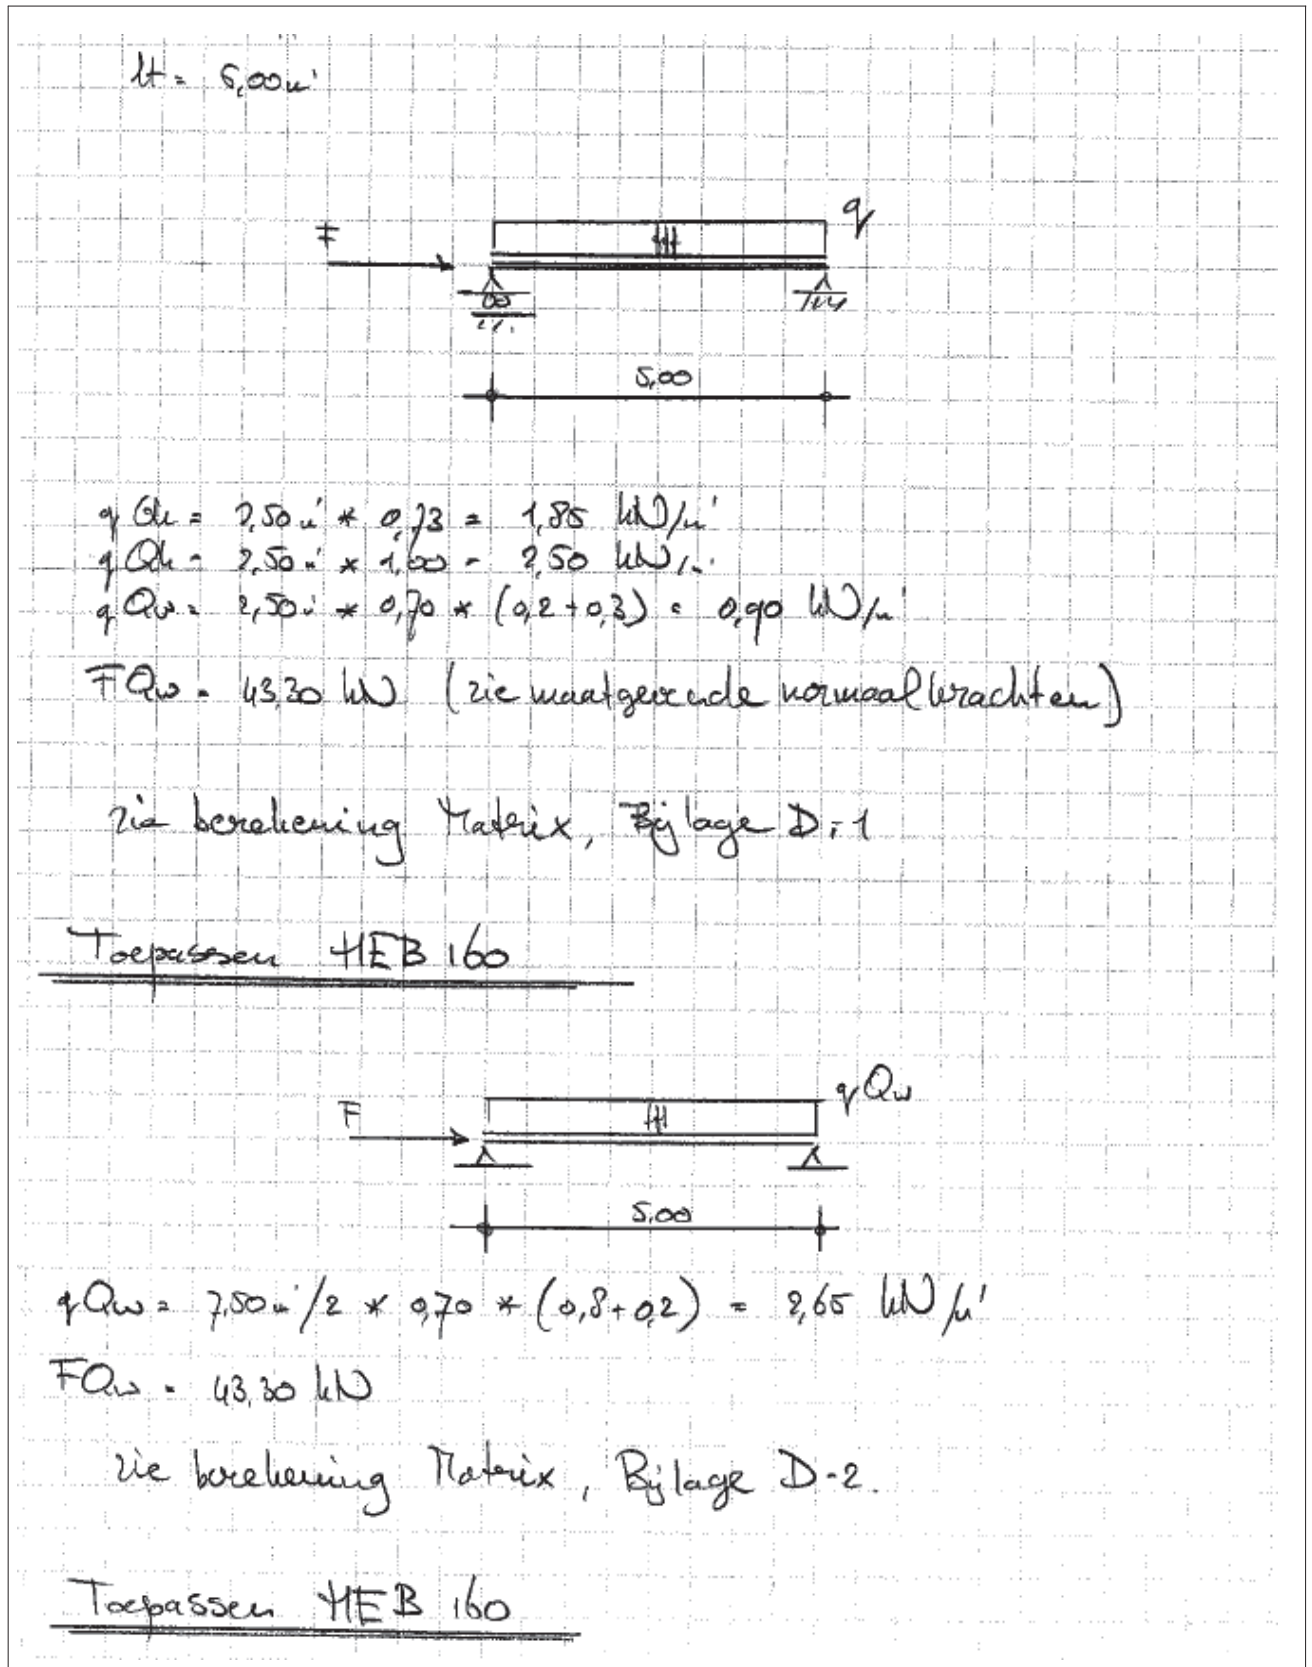 lt = 5,00 m'
F
q
5,00
q Gk = 2,50 m' * 0,73 = 1,85 kN/m'
q Qk = 2,50 m' * 1,00 = 2,50 kN/m'
q Qw = 2,50 m' * 0,70 * (0,2 + 0,3) = 0,90 kN/m'
FQw = 43,30 kN (zie maatgevende normaalkrachten)
zie berekening Matrix, Bijlage D-1
Toepassen HEB 160
F
q Qw
5,00
q Qw = 7,50 m'/2 * 0,70 * (0,8 + 0,2) = 2,65 kN/m'
FQw = 43,30 kN
zie berekening Matrix, Bijlage D-2.
Toepassen HEB 160